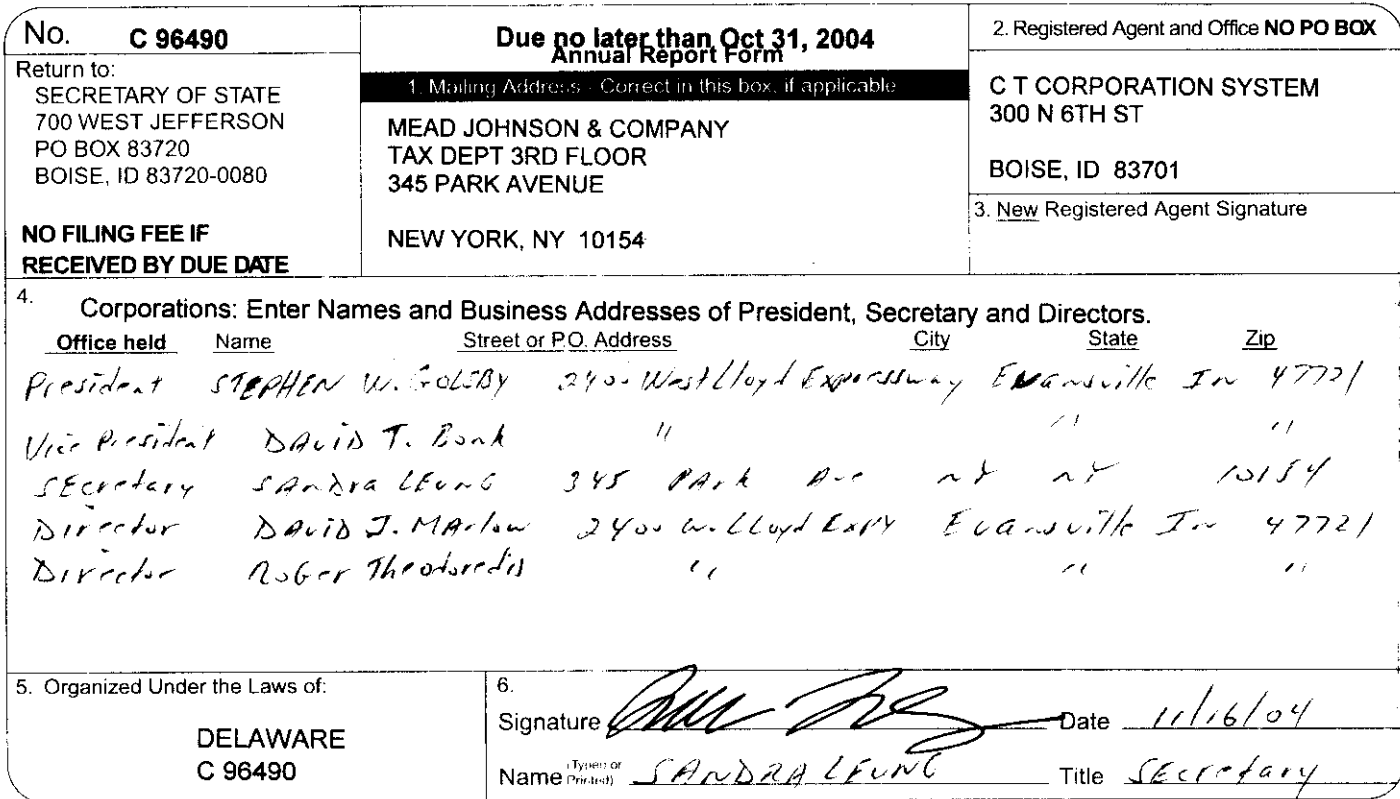 No. C 96490
Return to:
SECRETARY OF STATE
700 WEST JEFFERSON
PO BOX 83720
BOISE, ID 83720-0080
NO FILING FEE IF
RECEIVED BY DUE DATE
Due no later than Oct 31, 2004
Annual Report Form
1. Mailing Address - Correct in this box, if applicable
MEAD JOHNSON & COMPANY
TAX DEPT 3RD FLOOR
345 PARK AVENUE
NEW YORK, NY 10154
2. Registered Agent and Office NO PO BOX
C T CORPORATION SYSTEM
300 N 6TH ST
BOISE, ID 83701
3. New Registered Agent Signature
4. Corporations: Enter Names and Business Addresses of President, Secretary and Directors.
Office held Name Street or P.O. Address City State Zip
President STEPHEN W. GOLSBY 2400 West Lloyd Expressway Evansville In 47721
Vice President DAviD T. Bonk " " "
SEcretary SAndra LEunG 345 PArk Ave nY nY 10154
Director DAviD J. MArlow 2400 W. LLoyd ExpY Evansville In 47721
Director RoGer Theodoredis " " "
5. Organized Under the Laws of:
DELAWARE
C 96490
6.
Signature Date 11/16/04
Name (Typed or Printed) SANDRA LEUNG Title SEcretary